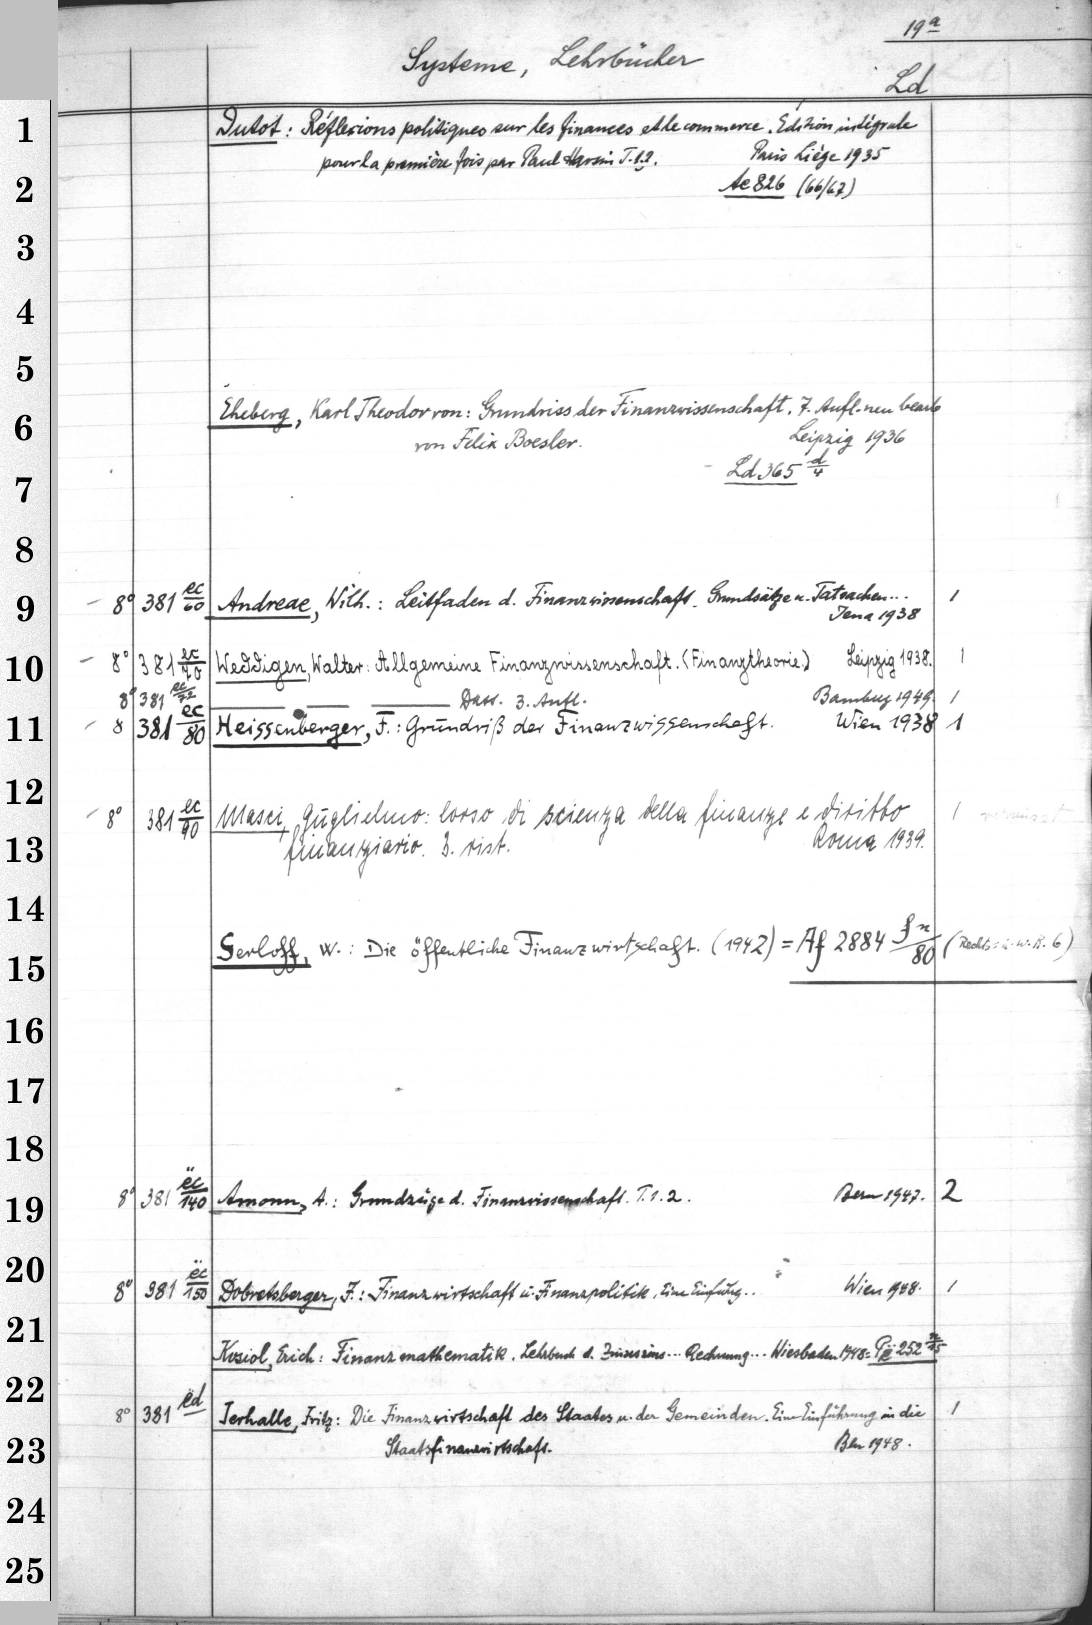 19a
Systeme, Lehrbücher
Ld
1
Dutot: Réflexions politiques sur les finances et le commerce. Édition intégrale
pour la première fois par Paul Harsin T.1.2. Paris Liége 1935
2
Ae 826 (66/67)
3
4
5
Eheberg, Karl Theodor von: Grundriss der Finanzwissenschaft. 7. Aufl. neu bearb
6
von Felix Boesler. Leipzig 1936
Ld 365 d/4
7
8
9 – 8° 381 ec/60 Andreae, Wilh.: Leitfaden d. Finanzwissenschaft. Grundsätze u. Tatsachen... 1
Jena 1938
10 – 8° 381 ec/70 Weddigen, Walter: Allgemeine Finanzwissenschaft. (Finanztheorie) Leipzig 1938. 1
8° 381 ec/72 — — — Dass. 3. Aufl. Bamberg 1949. 1
11 – 8 381 ec/80 Heissenberger, F.: Grundriß der Finanzwissenschaft. Wien 1938 1
12
– 8° 381 ec/90 Masci, Guglielmo: Corso di scienza della finanze e diritto 1
13 finanziario. 3. rist. Roma 1939.
14
Gerloff, W.: Die öffentliche Finanzwirtschaft. (1942) = Af 2884 fn/80 (Rechts- u. W. R. 6)
15
16
17
18
19 8° 381 ëc/140 Amonn, A.: Grundzüge d. Finanzwissenschaft. T.1.2. Bern 1947. 2
20
8° 381 ëc/150 Dobretsberger, J.: Finanzwirtschaft u. Finanzpolitik. Eine Einfürg.. Wien 948. 1
21
Kosiol, Erich: Finanzmathematik. Lehrbuch d. Zinseszins... Rechnung... Wiesbaden 1948 = 252
22
8° 381 ëd Terhalle, Fritz: Die Finanzwirtschaft des Staates u. der Gemeinden. Eine Einführung in die 1
23 Staatsfinanzwirtschaft. Bln 1948.
24
25